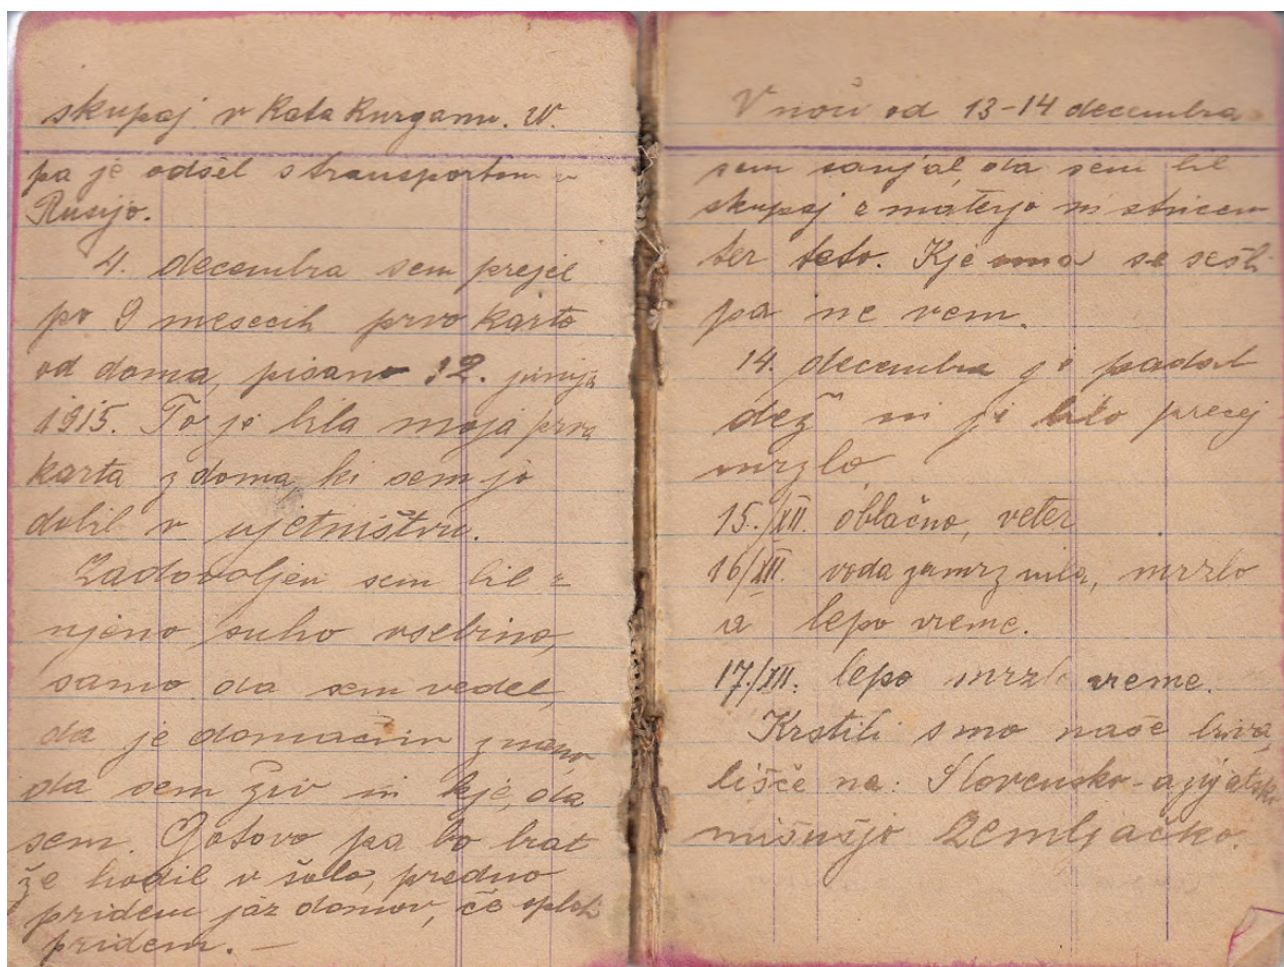 skupaj v Kata Kurganu. W.
pa je odšel s transportom v
Rusijo.
4. decembra sem prejel
po 9 mesecih prvo karto
od doma, pisano 12. junija
1915. To je bila moja prva
karta z doma, ki sem jo
dobil v ujetništvu.
Zadovoljen sem bil z
njeno suho vsebino,
samo da sem vedel,
da je domačim znano,
da sem živ in kje, da
sem. Gotovo pa bo brat
že hodil v šolo, predno
pridem jaz domov, če sploh
pridem. —
V noči od 13-14 decembra
sem sanjal, da sem bil
skupaj z materjo in stricem
ter teto. Kje smo se sešli
pa ne vem.
14. decembra je padal
dež in je bilo precej
mrzlo
15./XII. oblačno, veter
16/XII. voda zamrznila, mrzlo
a lepo vreme.
17./XII. lepo mrzlo vreme.
Krstili smo naše biva
lišče na: Slovensko-azijatsko
Zemljačko.